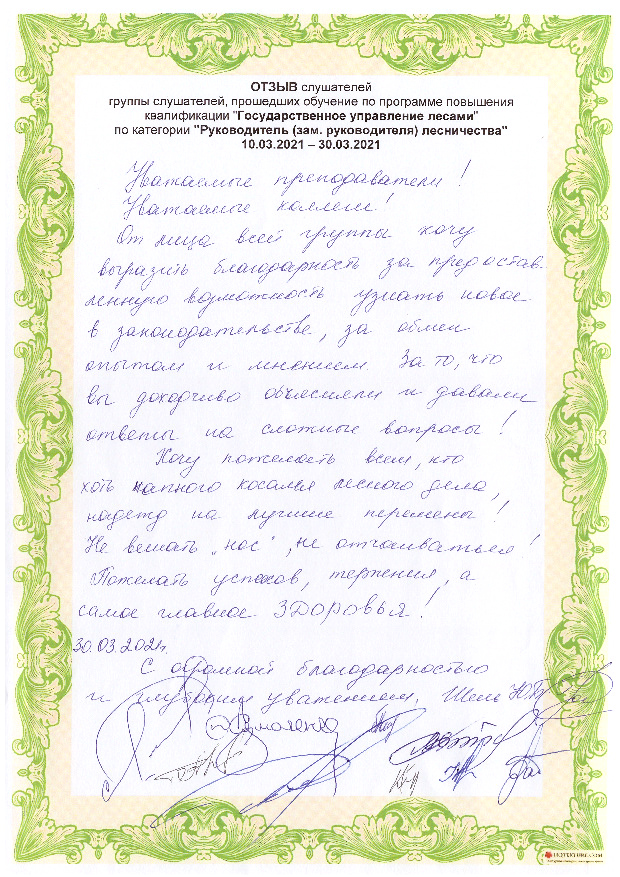 ОТЗЫВ слушателей
группы слушателей, прошедших обучение по программе повышения
квалификации "Государственное управление лесами"
по категории "Руководитель (зам. руководителя) лесничества"
10.03.2021 – 30.03.2021
Уважаемые преподаватели!
Уважаемые коллеги!
От лица всей группы хочу
выразить благодарность за предостав-
ленную возможность узнать новое
в законодательстве, за обмен
опытом и мнением. За то, что
вы доходчиво объясняли и давали
ответы на сложные вопросы!
Хочу пожелать всем, кто
хоть немного косался лесного дела,
надежд на лучшие перемены!
Не вешать „нос", не отчаиваться!
Пожелать успехов, терпения, а
самое главное ЗДОРОВЬЯ!
30.03.2021г.
С огромной благодарностью
и глубоким уважением,